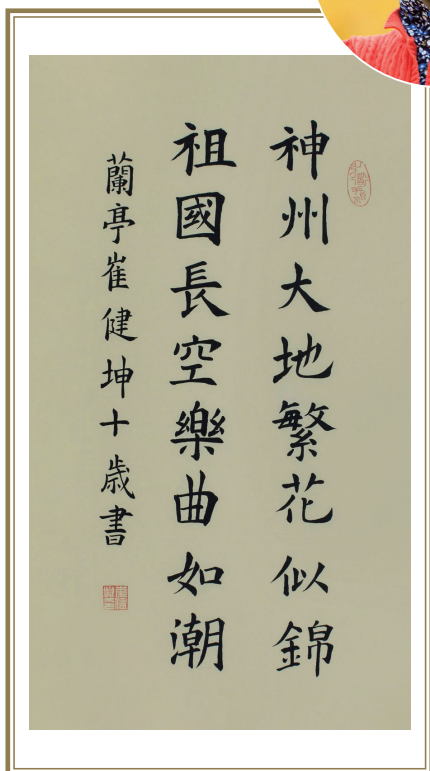 神州大地繁花似錦
祖國長空樂曲如潮
蘭亭崔健坤十歲書